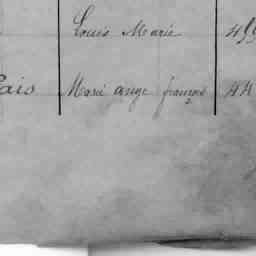 Louis Marie 49
ais Marie ange françois 44